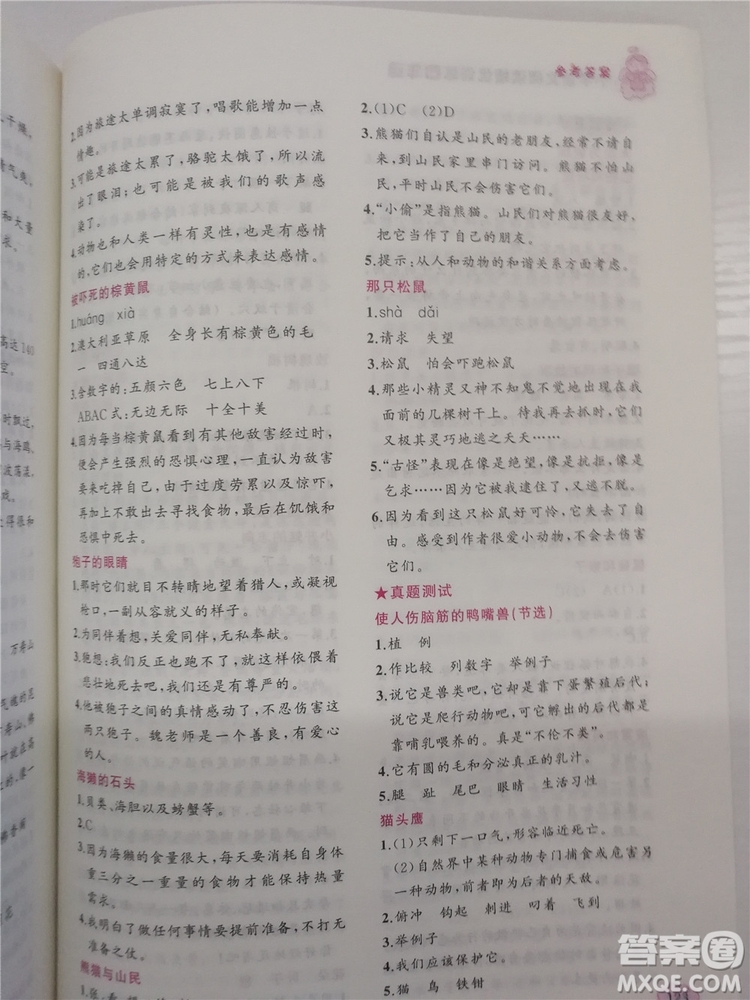 参考答案
2.因为旅途太单调寂寞了，唱歌能增加一点
情趣。
3.可能是旅途太累了，骆驼太饿了，所以流
出了眼泪；也可能是被我们的歌声感
染了。
4.动物也和人类一样有灵性，也是有感情
的，它们也会用特定的方式来表达感情。
被吓死的棕黄鼠
1.huáng xià
2.澳大利亚草原 全身长有棕黄色的毛
一 四通八达
3.含数字的：五颜六色 七上八下
ABAC式：无边无际 十全十美
4.因为每当棕黄鼠看到有其他敌害经过时，
便会产生强烈的恐惧心理，一直认为敌害
要来吃掉自己，由于过度劳累以及惊吓，
再加上不敢去寻找食物，最后在饥饿和
恐惧中死去。
狍子的眼睛
1.那时它们就目不转睛地望着猎人，或凝视
枪口，一副从容就义的样子。
2.为同伴着想，关爱同伴，无私奉献。
3.猜想：我们反正也跑不动了，就这样依偎着
悲壮地死去吧，我们还是有尊严的。
4.他被狍子之间的真情感动了，不忍伤害
这两只狍子。魏老师是一个善良，有爱心
的人。
海獭的石头
1.贝类、海胆以及螃蟹等。
2.C
3.因为海獭的食量很大，每天要消耗自身体
重三分之一重量的食物才能保持热量
需求。
4.我明白了做任何事情要提前准备，不打无
准备之仗。
熊猫与山民
2.(1)C (2)D
3.熊猫们自认是山民的老朋友，经常不请自
来，到山民家里串门访问。熊猫不怕山
民，平时山民不会伤害它们。
4.“小偷”是指熊猫。山民们对熊猫很友好，
把它当作了自己的朋友。
5.提示：从人和动物的和谐关系方面考虑。
那只松鼠
1.shà dǎi
2.请求 失望
3.松鼠 怕会吓跑松鼠
4.那些小精灵又神不知鬼不觉地出现在我
面前的几棵树干上。待我再去抓时，它们
又极其灵巧地逃之夭夭……
5.“古怪”表现在像是绝望，像是抗拒，像是
乞求…… 因为它被逮住了，无法逃脱。
6.因为看到这只松鼠好可怜，它失去了自
由。感受到作者很爱小动物，不会去伤害
它们。
★真题测试
使人伤脑筋的鸭嘴兽(节选)
1.植 例
2.作比较 列数字 举例子
3.说它是兽类吧，它却是靠下蛋繁殖后代；
说它是爬行动物吧，可它孵出的后代都是
靠哺乳喂养的。真是“不伦不类”。
4.它有圆的毛和分泌真正的乳汁。
5.腿 趾 尾巴 眼睛 生活习性
猫头鹰
1.(1)只剩下一口气，形容临近死亡。
(2)自然界中某种动物专门捕食或危害另
一种动物，前者即为后者的天敌。
2.俯冲 钩起 刺进 叼着 飞到
3.举例子
4.我们应该保护它。
5.猫 鸟 铁钳
答案圈
MXQE.COM